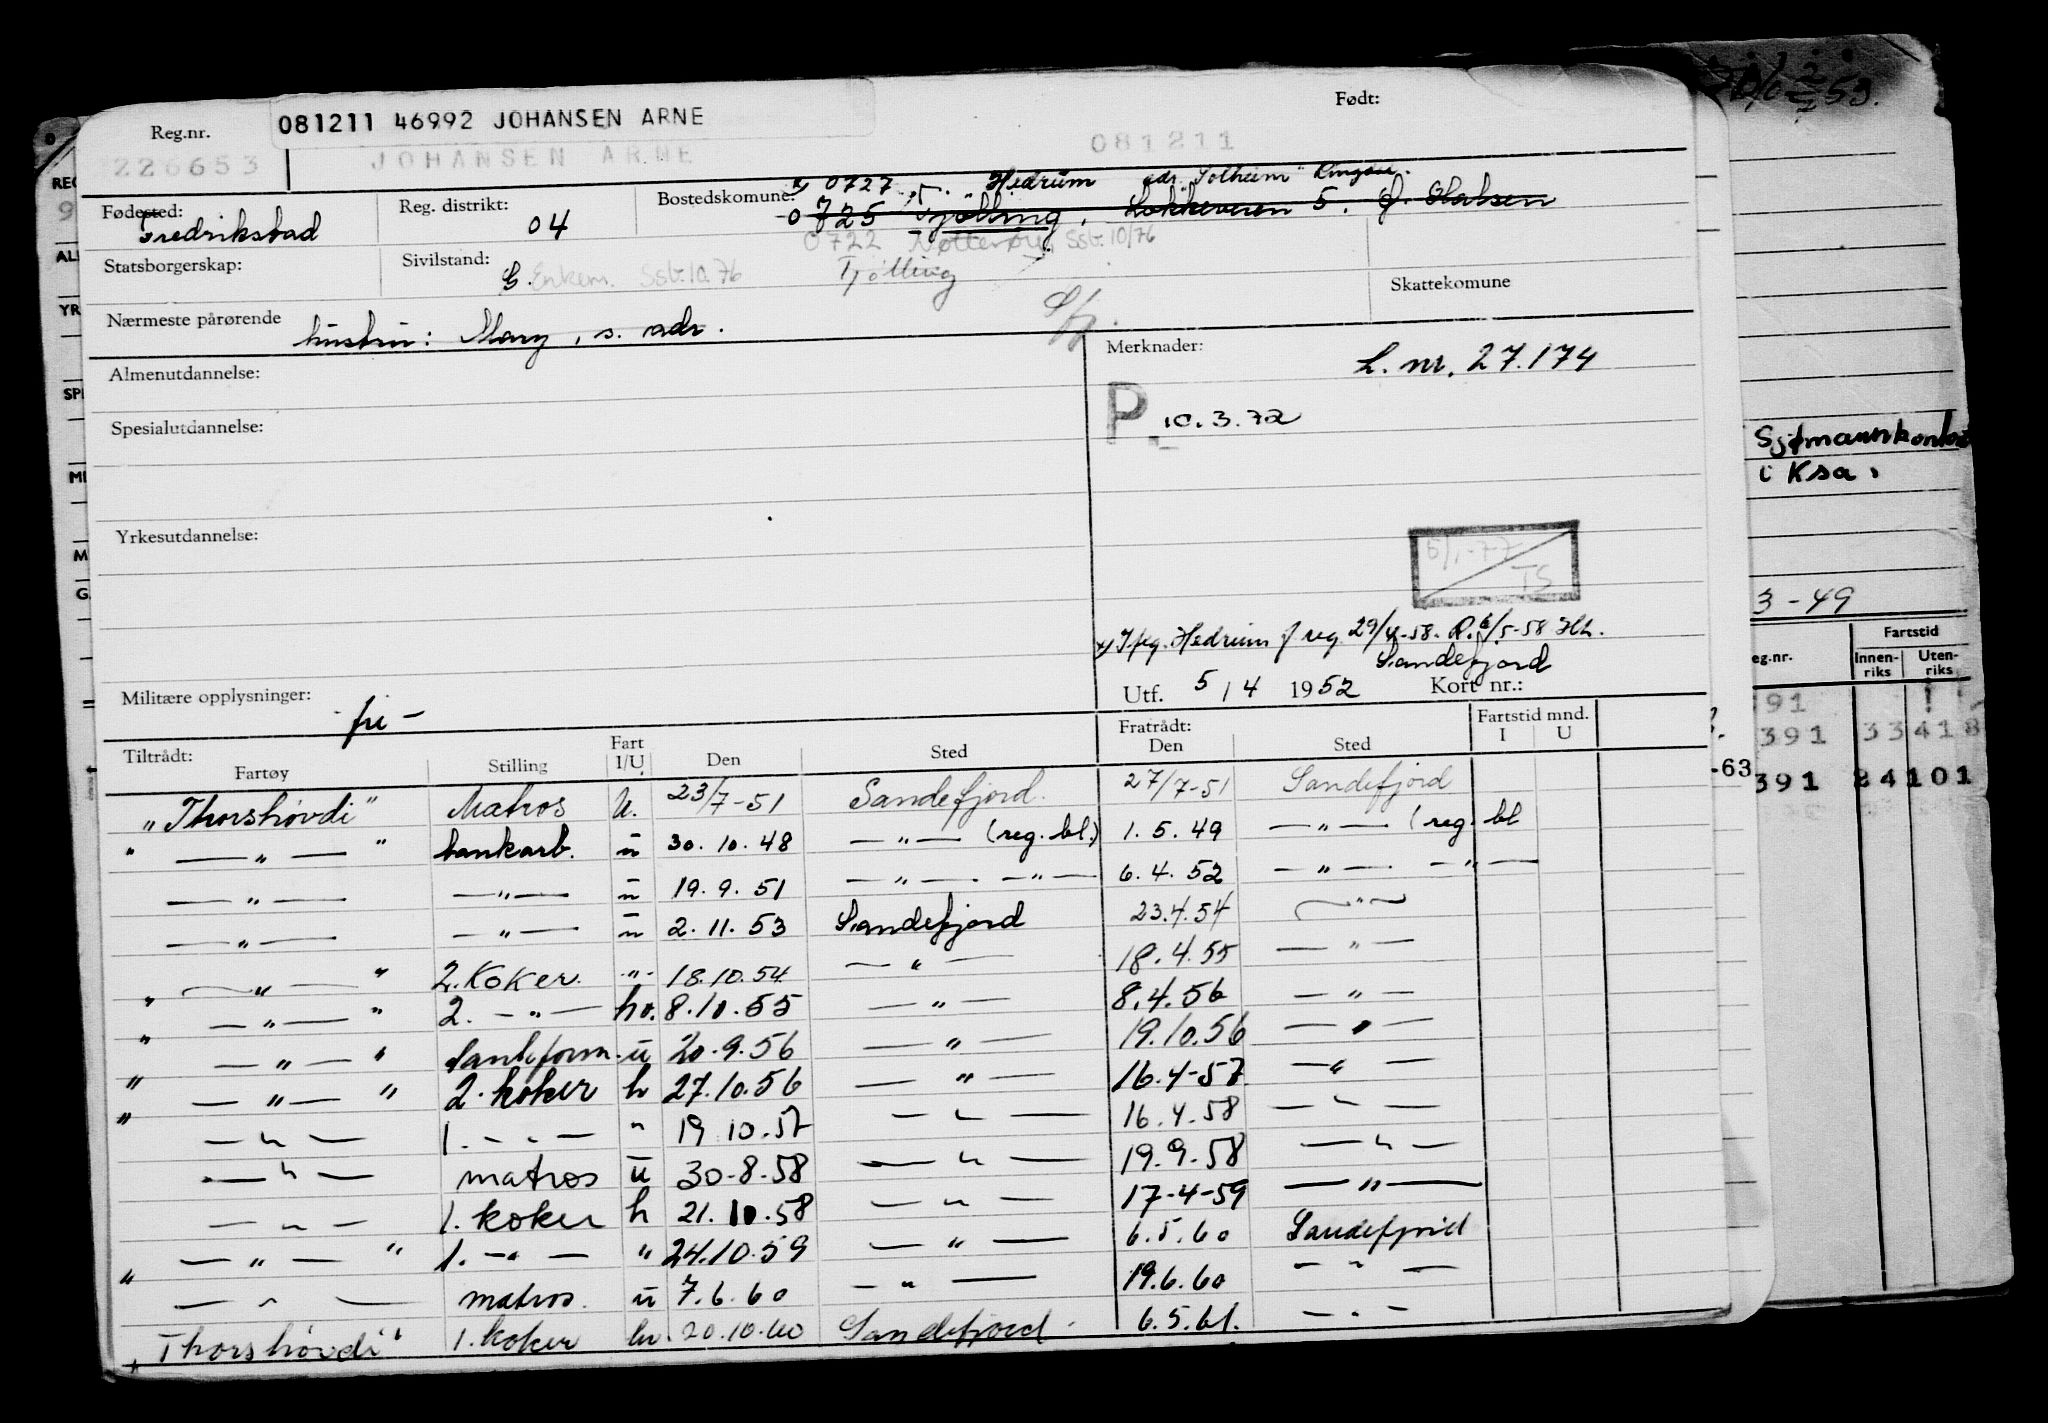 Reg.nr.
081211 46992 JOHANSEN ARNE
Født:
226653
JOHANSEN ARNE
081211
Fødested:
Fredrikstad
Reg. distrikt:
04
Bostedskomune:
x 0727 Hedrum adr. "Solheim" Ringdal.
0725 Tjølling, Løkkeveien 5.
0722 Nøtterøy Ssb. 10/76
Tjølling
Statsborgerskap:
Sivilstand:
G. Enkem. Ssb. 10.76
Skattekomune
Nærmeste pårørende
hustru: Mary, s. adr.
Almenutdannelse:
Merknader:
L. nr. 27.174
P. 10.3.72
Spesialutdannelse:
Yrkesutdannelse:
5/1-77
TS
x) Hedrum f reg. 29/4-58. R. 6/5-58 HH.
Sandefjord
Utf. 5 / 4 1952 Kort nr.:
Militære opplysninger:
fri -
Tiltrådt:
Fartøy Stilling Fart I/U Den Sted
Fratrådt:
Den Sted
Fartstid mnd.
I U
"Thorshøvdi" Matros U. 23/7-51 Sandefjord. 27/7-51 Sandefjord
" — " — " tankarb. u 30.10.48 — " — (reg. bl.) 1.5.49 — " — (reg. bl
— " — — " — u 19.9.51 — " — . — " — 6.4.52 — " — — " —
— " — — " — u 2.11.53 Sandefjord 23.4.54 — " —
" — " — " 2. Koker. " 18.10.54 — " — 18.4.55 — " —
" — " — " 2. — " — hv. 8.10.55 — " — 8.4.56 — " —
" — " — " tankform. u 20.9.56 — " — 19.10.56 — " —
" — " — " 2. koker h 27.10.56 — " — 16.4-57 — " —
— " — 1. — " — " 19 10.57 — " — 16.4.58 — " —
— " — matros u 30-8.58 — " — 19.9.58 — " —
— " — 1. koker h 21.10.58 — " — 17-4-59 — " —
" — " — " 1. — " — " 24.10.59 — " — 6.5.60 Sandefjord
— " — matros. u 7.6.60 — " — 19.6.60 — " —
"Thorshøvdi" 1. koker hv. 20.10.60 Sandefjord. 6.5.61. — " —
Sjømannskontor
i Ksa.
3-49
Fartstid
eg.nr. Innen-riks Uten-riks
391 33 418
-63 391 24 101